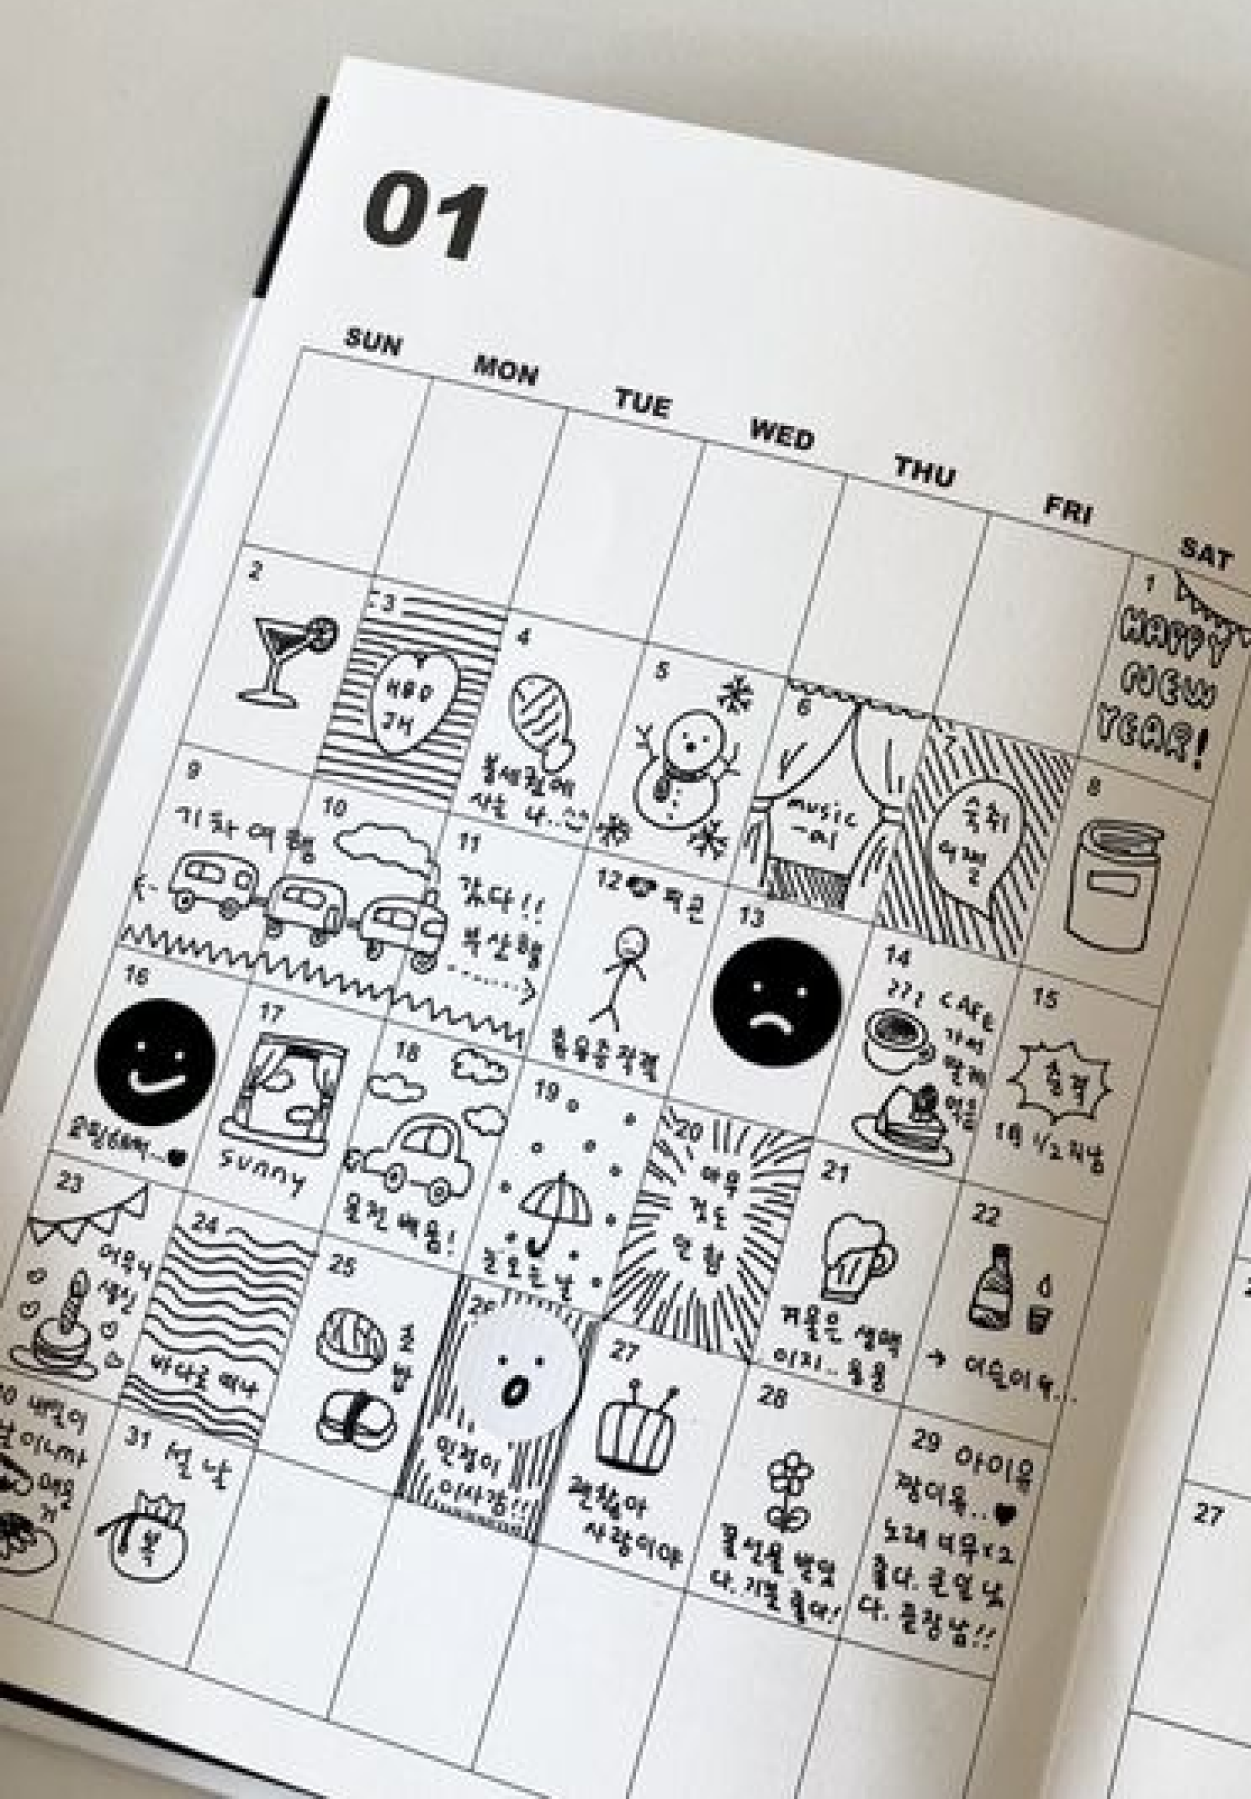 01
SUN MON TUE WED THU FRI SAT
1
HAPPY
NEW
YEAR!
2
3
HBD
JH
4
사는 나..
5
6
music
-al
7
숙취
어쩔
8
9
기차여행
10
11
간다!!
부산행
12 퇴근
13
14
CAFE
가서
먹음
15
충격
1월 1/2 지남
16
17
sunny
18
운전 배움!
19
눈 오는 날
20
아무
것도
안 함
21
겨울은 생맥
이지..
22
→
23
어무니
생신
24
바다로 떠나
25
초
밥
26
이사감!!!
27
괜찮아
사랑이야
28
꽃선물 받았
다. 기분 좋다!
29 아이유
짱이유..
노래 너무x2
좋다. 큰일 났
다. 눈장남!!
내일이
이니까
매운
거
31 설날
복
27